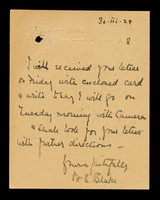 30-III-24
8
I will received your letter
on Friday with enclosed card
& write that I will go on
Tuesday morning with Camera
& shall look for your letter
with further directions –
Yours faithfully
W. Blake